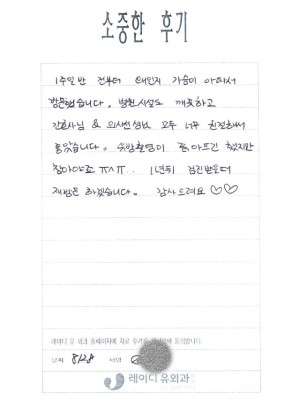 소중한 후기
1주일 반 전부터 왠인지 가슴이 아파서
방문했습니다. 병원시설도 깨끗하고
간호사님 & 의사선생님 모두 너무 친절해서
좋았습니다. 유방촬영이 좀 아프긴 했지만
참아야죠 ㅠㅅㅠ.. 1년뒤 검진받으러
재방문 하겠습니다. 감사드려요 ♡♡
레이디 유 외과 홈페이지에 치료 후기를 동의합니다.
날짜 8/28 서명
레이디유외과